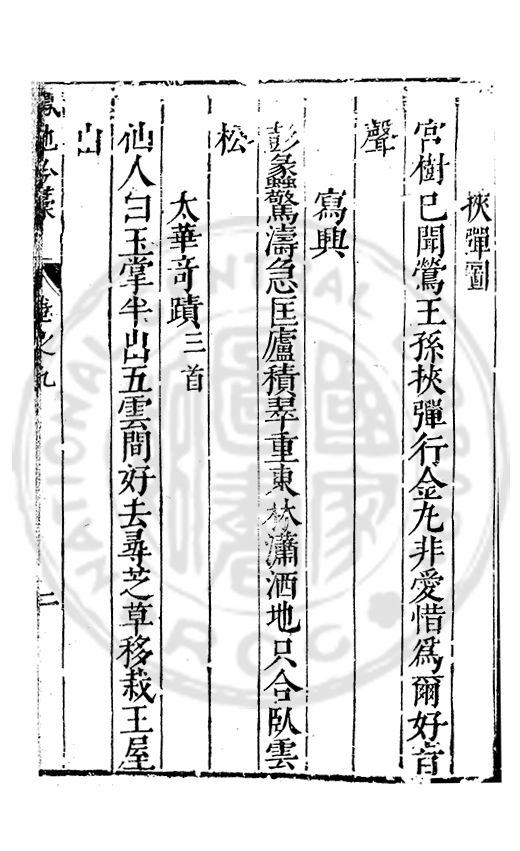 挾彈圖
宮樹已聞鶯王孫挾彈行金丸非愛惜爲爾好音
聲
寫興
彭蠡驚濤急匡廬積翠重東林瀟洒地只合臥雲
松
太華奇蹟三首
仙人白玉掌半出五雲間好去尋芝草移栽王屋
山
卷之九
二